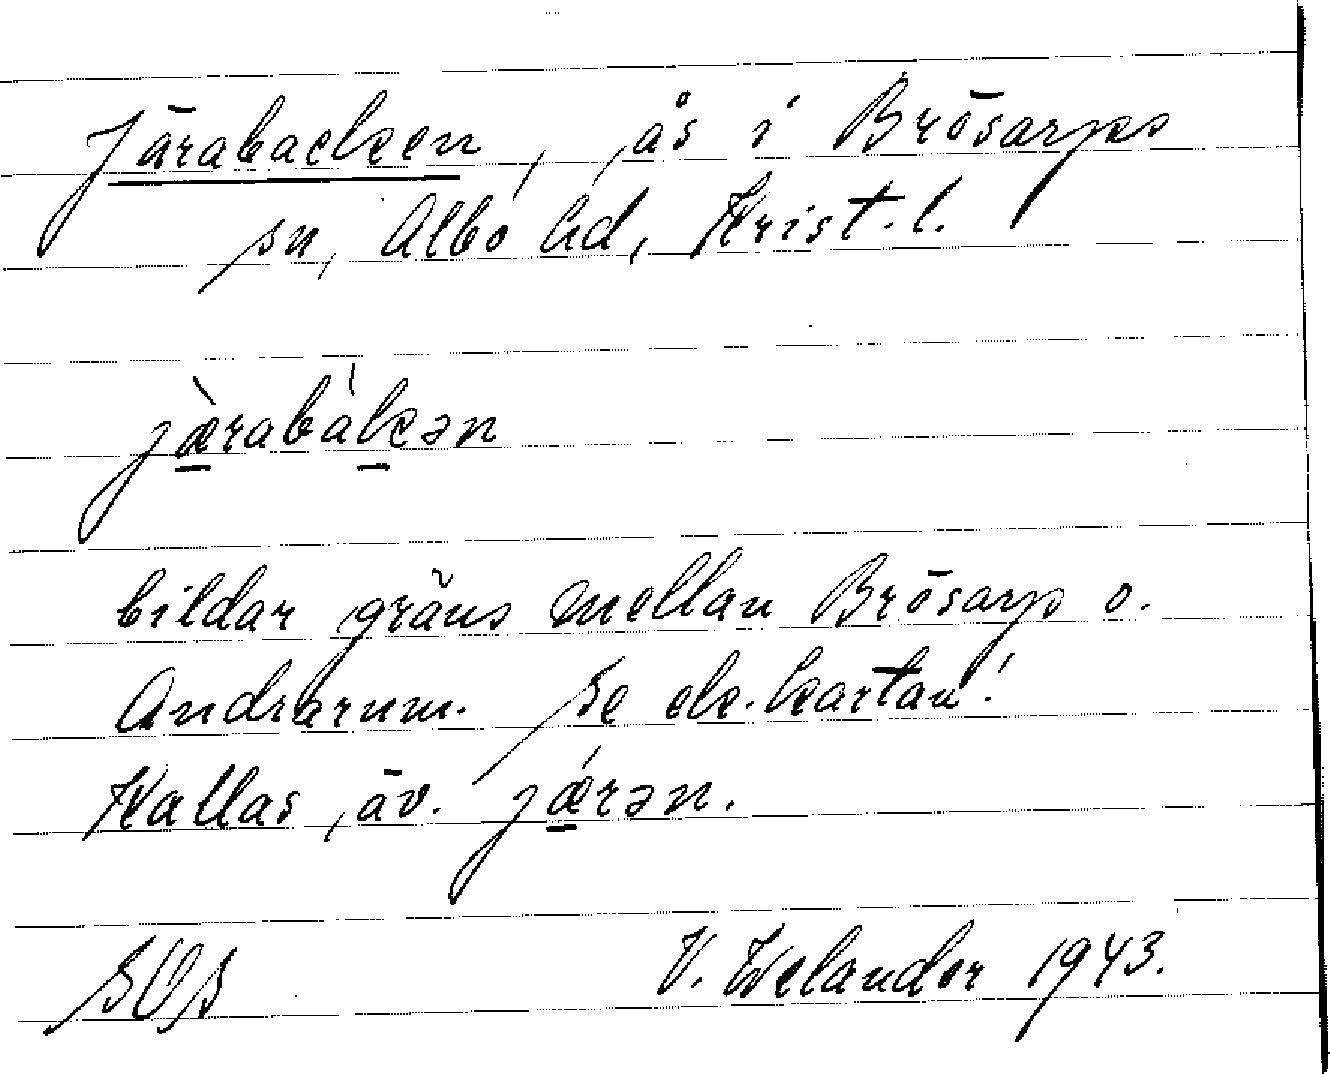 Järabacken, ås i Brösarps
sn, Albo hd, Krist. l.
jæ̀rabàkən
bildar gräns mellan Brösarp o.
Andrarum. Se ek. kartan!
Kallas äv. jǽrən.
SOS V. Welander 1943.